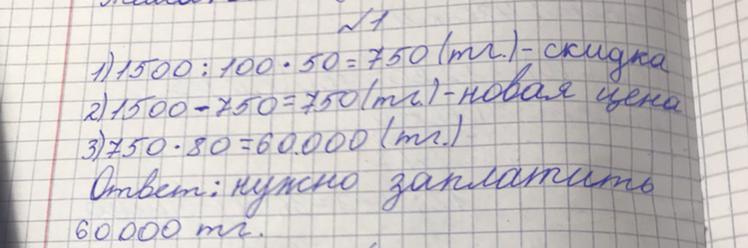 №1
1) 1500 : 100 · 50 = 750 (тг.) - скидка
2) 1500 - 750 = 750 (тг.) - новая цена
3) 750 · 80 = 60.000 (тг.)
Ответ: нужно заплатить
60000 тг.